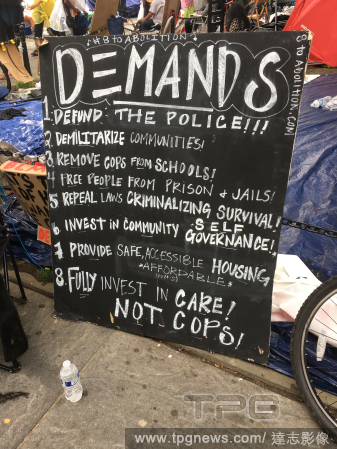 #8toABOLITION
DEMANDS
1. DEFUND THE POLICE!!!
2 DEMILITARIZE COMMUNITIES!
3 REMOVE COPS FROM SCHOOLS!
4 FREE PEOPLE FROM PRISON & JAILS!
5 REPEAL LAWS CRIMINALIZING SURVIVAL!
6 INVEST IN COMMUNITY SELF
GOVERNANCE!
7 PROVIDE SAFE, ACCESSIBLE HOUSING
*AFFORDABLE*
8. FULLY INVEST IN CARE!
NOT COPS!
8toABOLITION.COM
TPG
www.tpgnews.com/ 達志影像